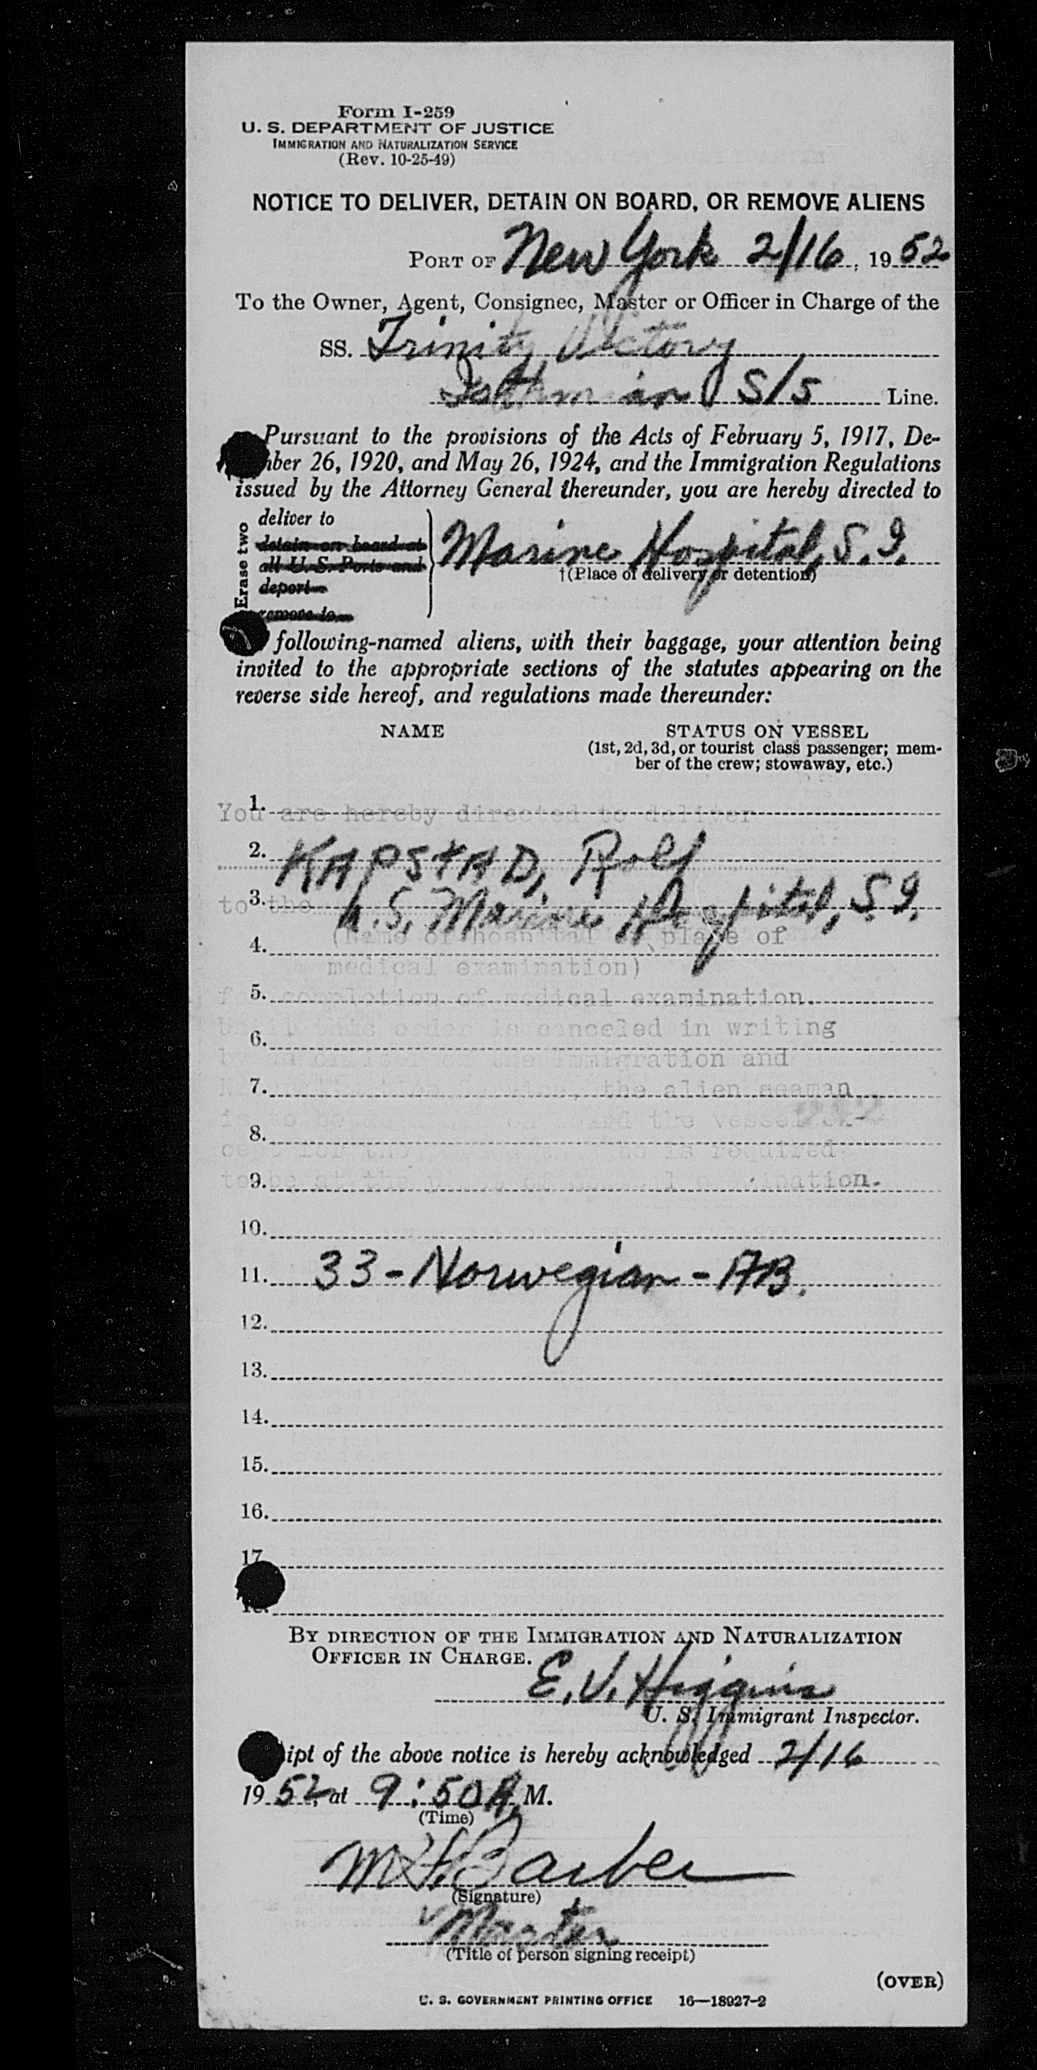 Form I-259
U. S. DEPARTMENT OF JUSTICE
IMMIGRATION AND NATURALIZATION SERVICE
(Rev. 10-25-49)
NOTICE TO DELIVER, DETAIN ON BOARD, OR REMOVE ALIENS
PORT OF New York 2/16, 1952
To the Owner, Agent, Consignee, Master or Officer in Charge of the
SS. Trinity Victory
Isthmian S/S Line.
Pursuant to the provisions of the Acts of February 5, 1917, De-
mber 26, 1920, and May 26, 1924, and the Immigration Regulations
issued by the Attorney General thereunder, you are hereby directed to
Erase two
deliver to
detain on board at
all U. S. Ports and
deport
remove to
Marine Hospital, S. I.
†(Place of delivery or detention)
following-named aliens, with their baggage, your attention being
invited to the appropriate sections of the statutes appearing on the
reverse side hereof, and regulations made thereunder:
NAME
STATUS ON VESSEL
(1st, 2d, 3d, or tourist class passenger; mem-
ber of the crew; stowaway, etc.)
1.
You are hereby directed to deliver
2. KAPSTAD, Rolf
3. to the U.S. Marine Hospital, S.I.
(Name of hospital or place of
4.
medical examination)
5. for completion of medical examination.
Until this order is canceled in writing
6.
by an officer of the Immigration and
7. the alien seaman
is to be on board the vessel ex-
8.
cept for the is required
9. to be at the place of medical examination.
10.
11. 33 - Norwegian - AB.
12.
13.
14.
15.
16.
17
BY DIRECTION OF THE IMMIGRATION AND NATURALIZATION
OFFICER IN CHARGE.
E. J. Higgins
U. S. Immigrant Inspector.
ipt of the above notice is hereby acknowledged 2/16
1952, at 9:50 A. M.
(Time)
M H Barber
(Signature)
Master
(Title of person signing receipt)
(OVER)
U. S. GOVERNMENT PRINTING OFFICE 16—18927-2